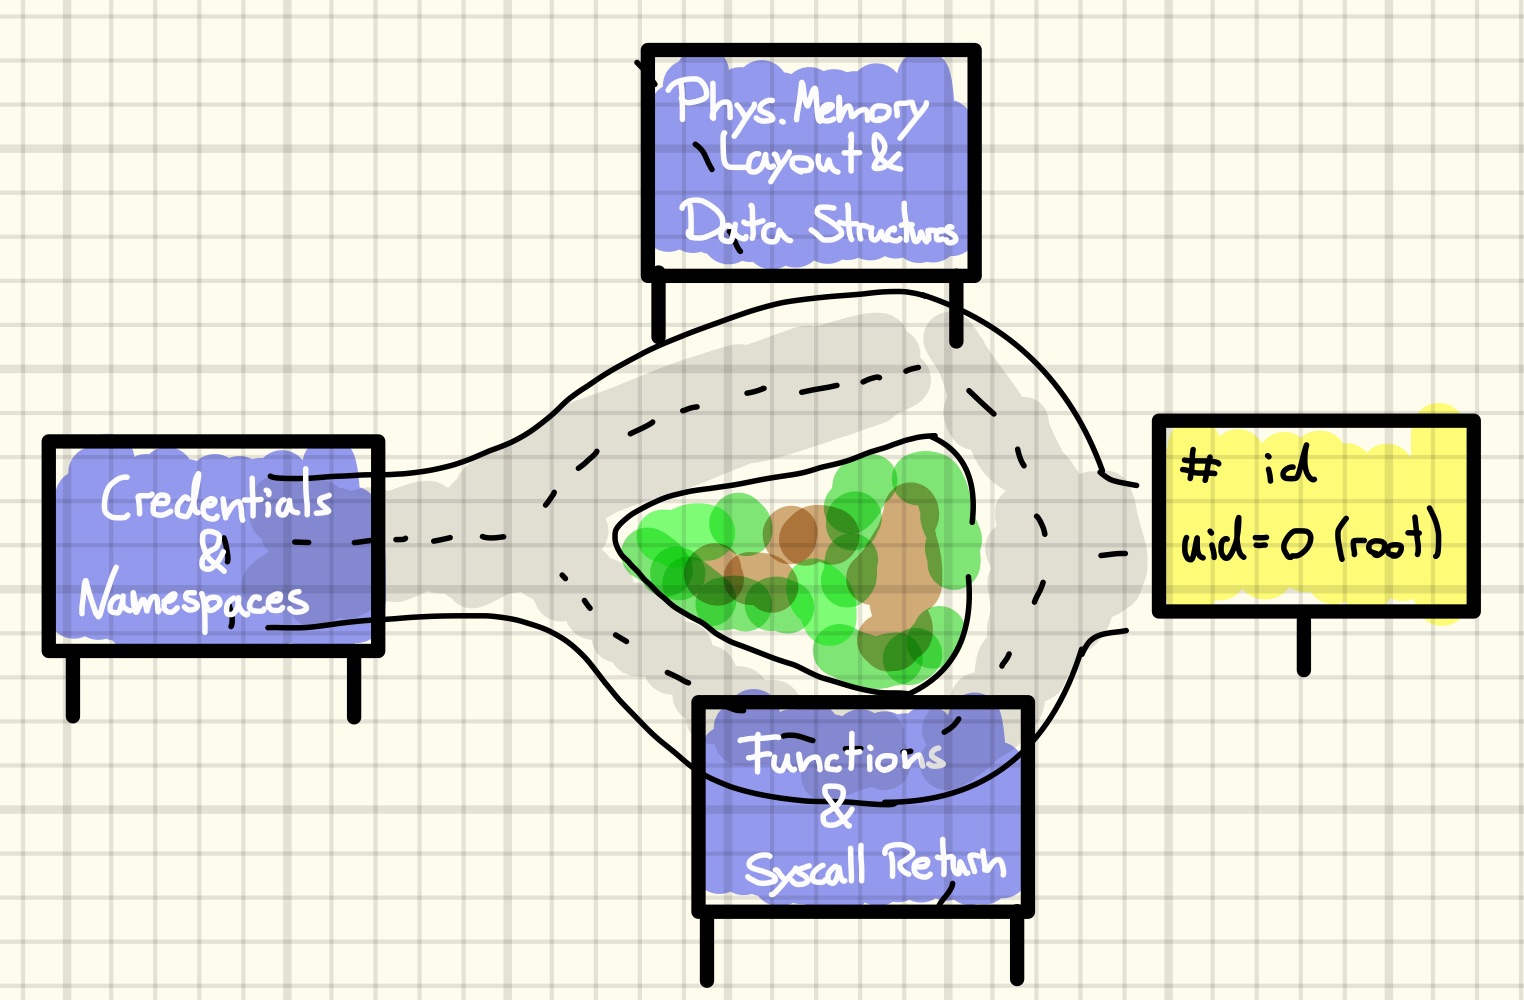 Phys. Memory
Layout &
Data Structures
Credentials
&
Namespaces
# id
uid=0 (root)
Functions
&
Syscall Return